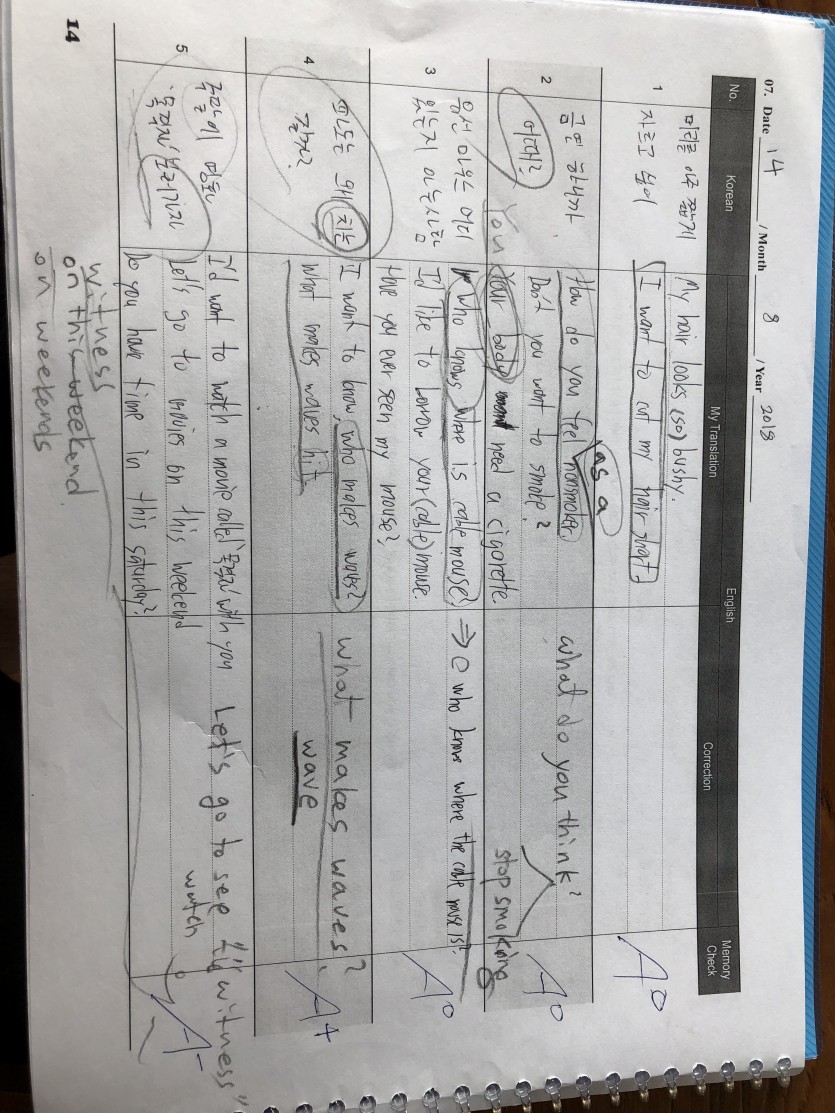 07. Date 14 / Month 8 / Year 2018
No. Korean My Translation English Correction Memory Check
1
머리를 아주 짧게
자르고 싶어
My hair looks (so) bushy.
I want to cut my hair short.
A0
2
금연 하니까
어때?
How do you feel nonsmoker.
as a
Don't you want to smoke?
You
Your body need a cigarette.
what do you think?
stop smoking
A0
3
유선 마우스 어디
있는지 아는사람
who knows where is cable mouse?
I'd like to borrow your (cable) mouse.
Have you ever seen my mouse?
⇒ who knows where the cable mouse is?
A0
4
파도는 왜 치는
걸까?
I want to know, who makes waves?
What makes waves hit
what makes waves?
wave
A+
5
주말에 영화
'목격자' 보러가자
I'd want to watch a movie called '목격자' with you
Let's go to movies on this weekend
Do you have time in this saturday?
Let's go to see "witness"
watch
A-
witness
on this weekend
on weekends
14